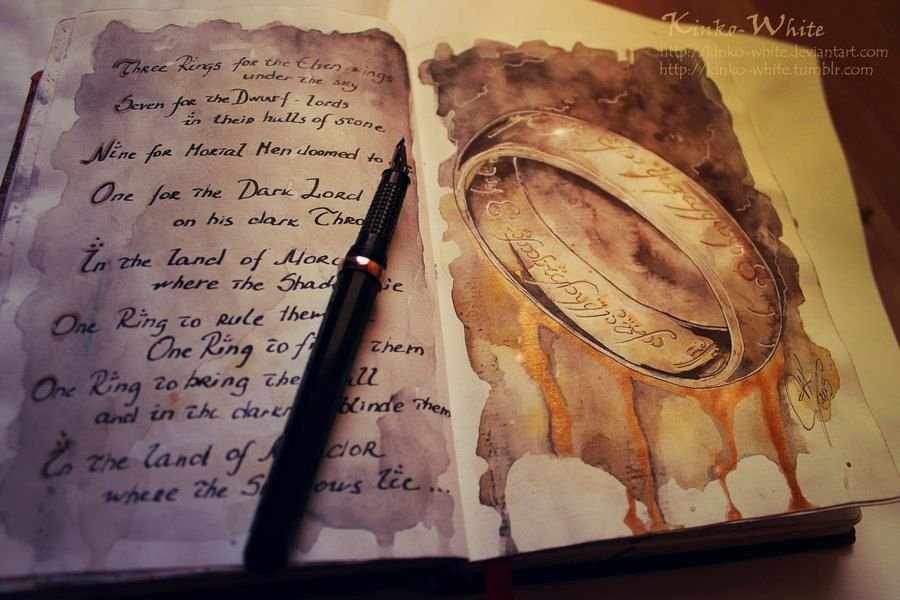 Three Rings for the Elven kings
under the sky
Seven for the Dwarf-lords
in their halls of stone
Nine for Mortal Men doomed to
One for the Dark Lord
on his dark Thro
In the land of Mord
where the Shad ie
One Ring to rule them
One Ring to f them
One Ring to bring the all
and in the darkn blinde them
In the land of M rdor
where the S dows lie ...
Kinko-White
http://kinko-white.deviantart.com
http://kinko-white.tumblr.com